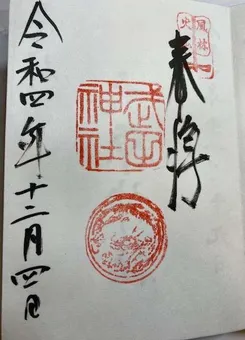 奉拝
風林火山
武田神社
令和四年十二月四日